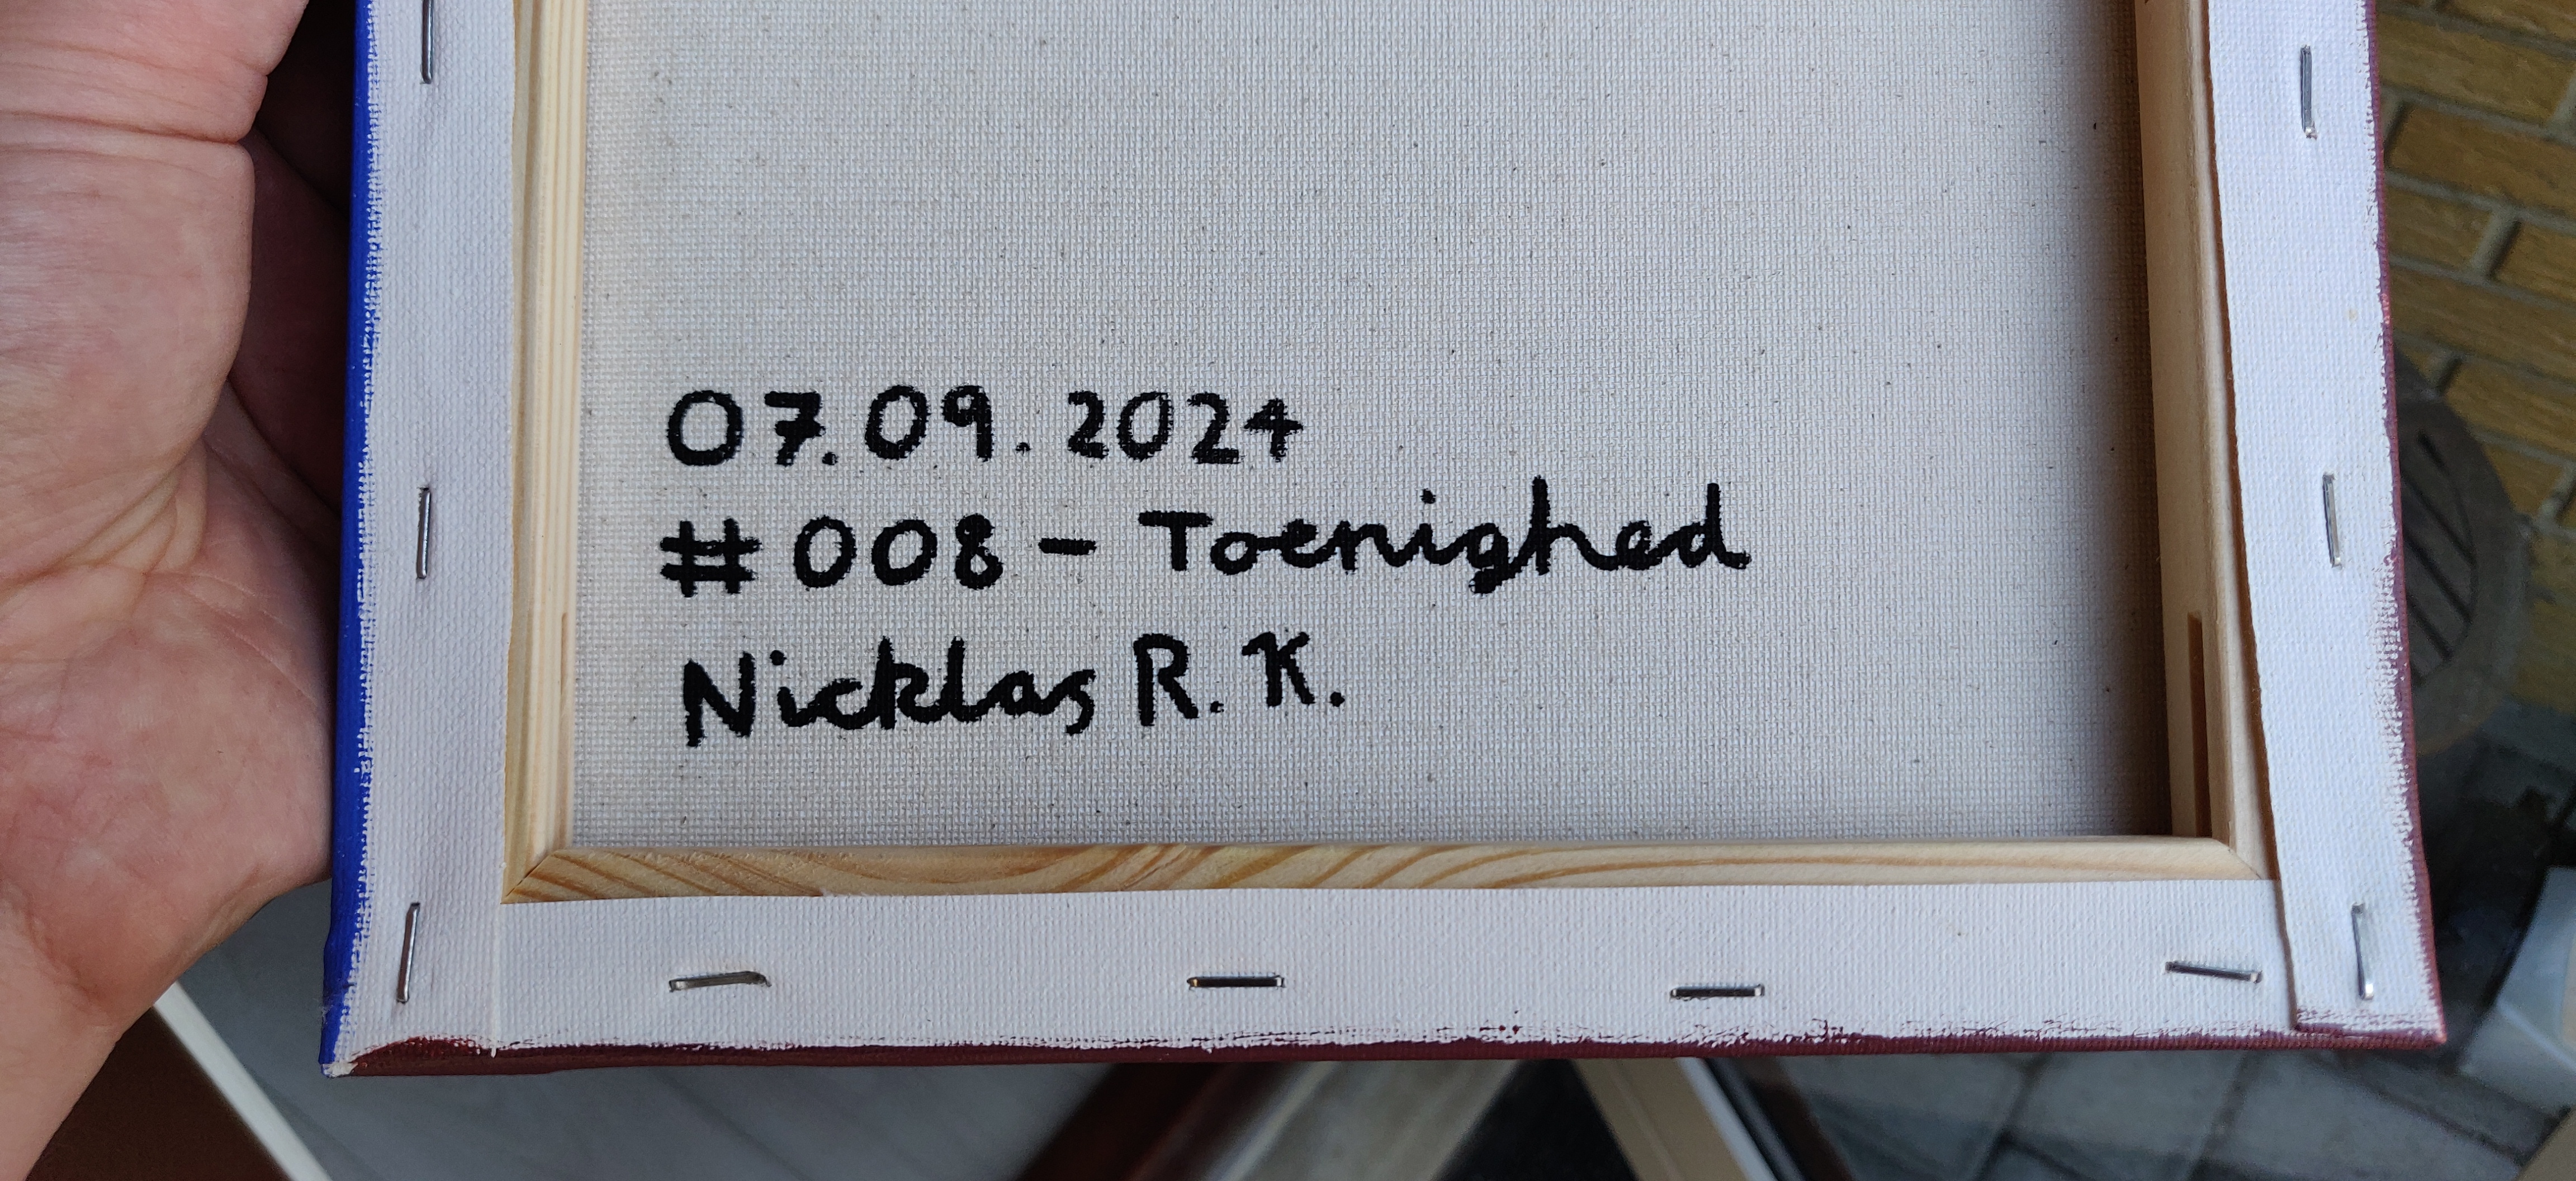 07.09.2024
#008 - Toenighed
Nicklas R. K.